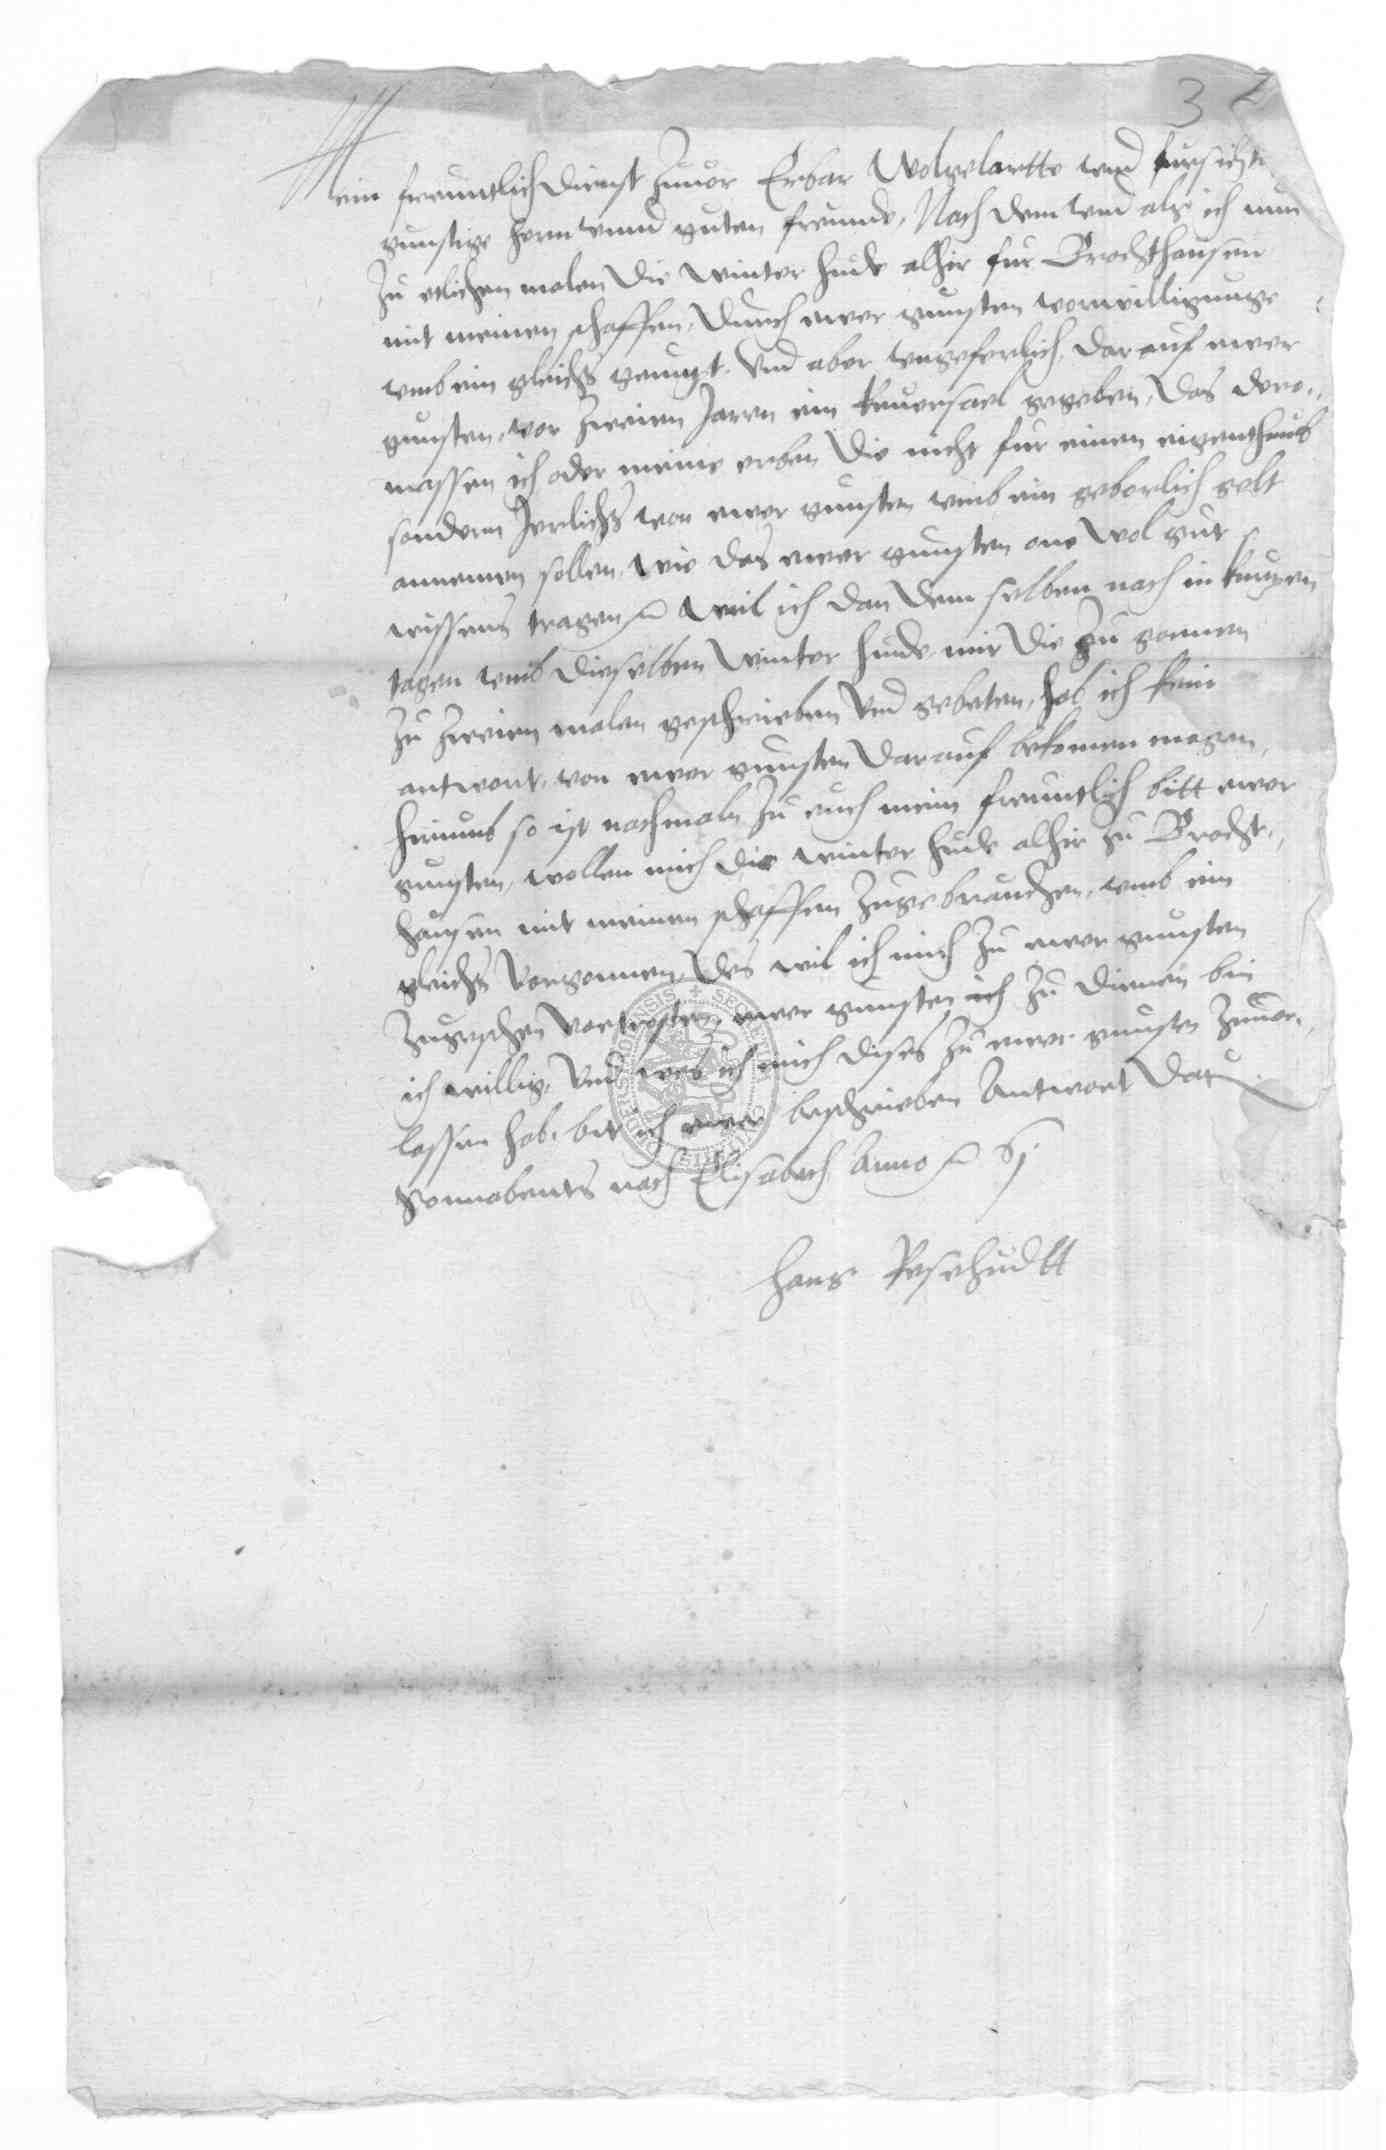 3
Mein freuntlich dienst zuuor Erbar Wolgelartte vnd fursicht
gunstige hern vnnd guten freunde, Nach dem vnd alse ich nun
zu etlichen malen die winter hude alhir fur Brochthausen
mit meinen schaffen, durch ewer gunsten vorwilligunge
vmb ein gleichs genuzt. Vnd aber vngeferlich, darauf ewer
gunsten, vor zweien Jaren ein Reuersael gegeben, das dero-
massen ich oder meine erben die nicht fur einen eigenthumb
sondern Jerlichs von ewer gunsten vmb ein geborlich gelt
annemen sollen, wie das ewer gunsten one wol gut
wissens tragen Weil ich dan dem selben nach in kurzen
tagen vmb dieselben winter hude mir die zu gonnen
zu zweien malen geschrieben vnd gebeten, hab ich kein
antwort, von ewer gunsten darauf bekomen mogen,
hirumb so ist nachmaln zu euch mein freuntlich bitt ewer
gunsten, wollen mich die winter hude alhir zu Brocht-
hausen mit meinen schaffen zugebrauchen, vmb ein
gleichs vorgonnen, des wil ich mich zu ewer gunsten
zugeschen vortrosten, ewer gunsten ich zu dienen bin
ich willig, Vnd wes ich mich dises zu ewer gunsten zuuor-
lassen hab, bit ich ewer beschrieben Antwort Dat
Sonnabents nach Elisabeth Anno 61
Hans Resehudtt